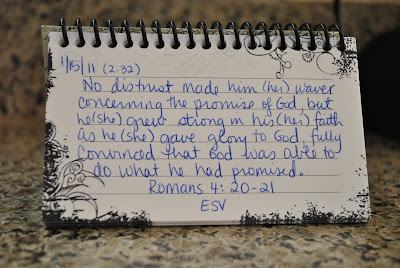 1/15/11 (2:32)
No distrust made him (her) waver
concerning the promise of God, but
he (she) grew strong in his (her) faith
as he (she) gave glory to God, fully
convinced that God was able to
do what he had promised.
Romans 4: 20-21
ESV